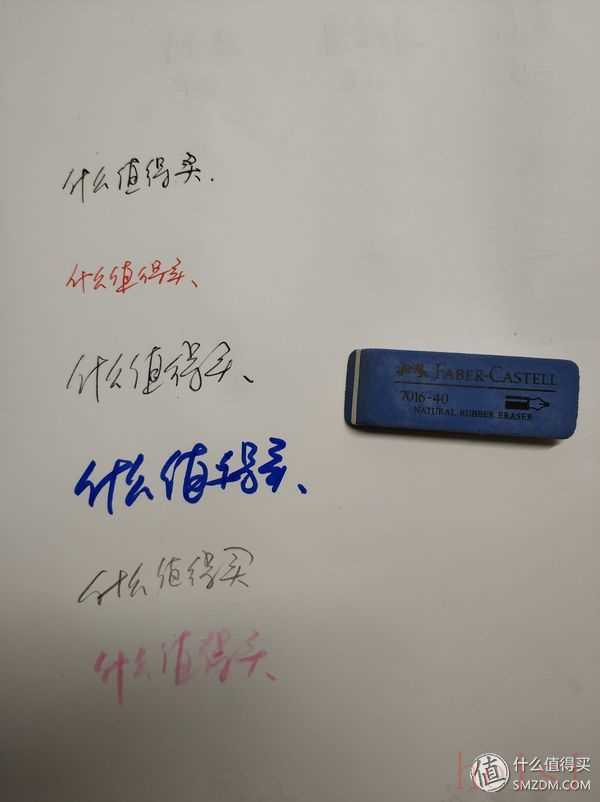 什么值得买.
什么值得买、
什么值得买、
FABER-CASTELL
7016-40
NATURAL RUBBER ERASER
什么值得买、
什么值得买
什么值得买、
值 什么值得买
SMZDM.COM